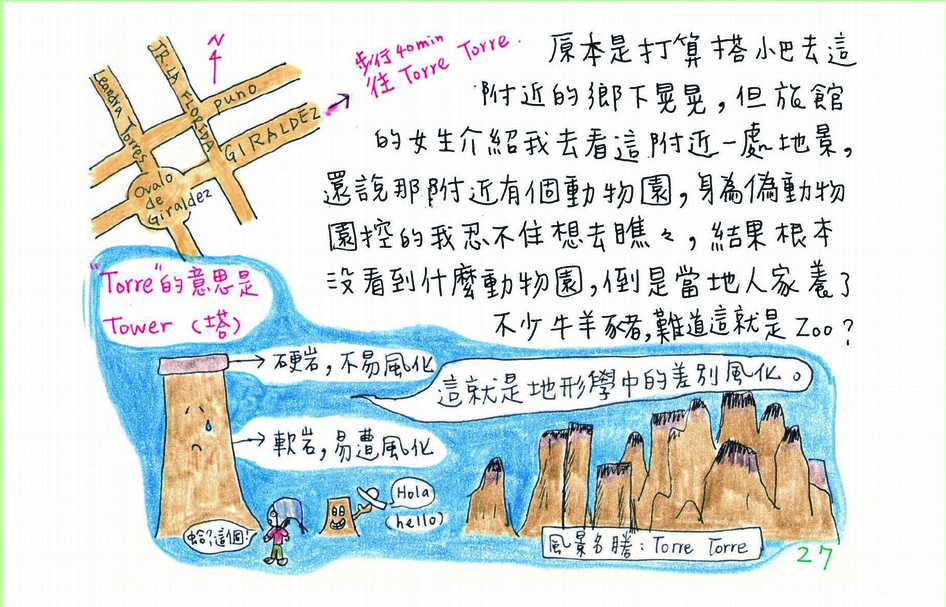 N
JR. LA FLORIDA
Leandra Torres
PUNO
GIRALDEZ
Ovalo
de
Giraldez
步行40min
往 Torre Torre.
原本是打算搭小巴去這
附近的鄉下晃晃,但旅館
的女生介紹我去看這附近一處地景,
還說那附近有個動物園,身為偽動物
園控的我忍不住想去瞧々,結果根本
沒看到什麼動物園,倒是當地人家養了
不少牛羊豬,難道這就是Zoo?
"Torre"的意思是
Tower (塔)
硬岩,不易風化
軟岩,易遭風化
這就是地形學中的差別風化。
蛤?這個!
Hola
(hello)
風景名勝:Torre Torre
27